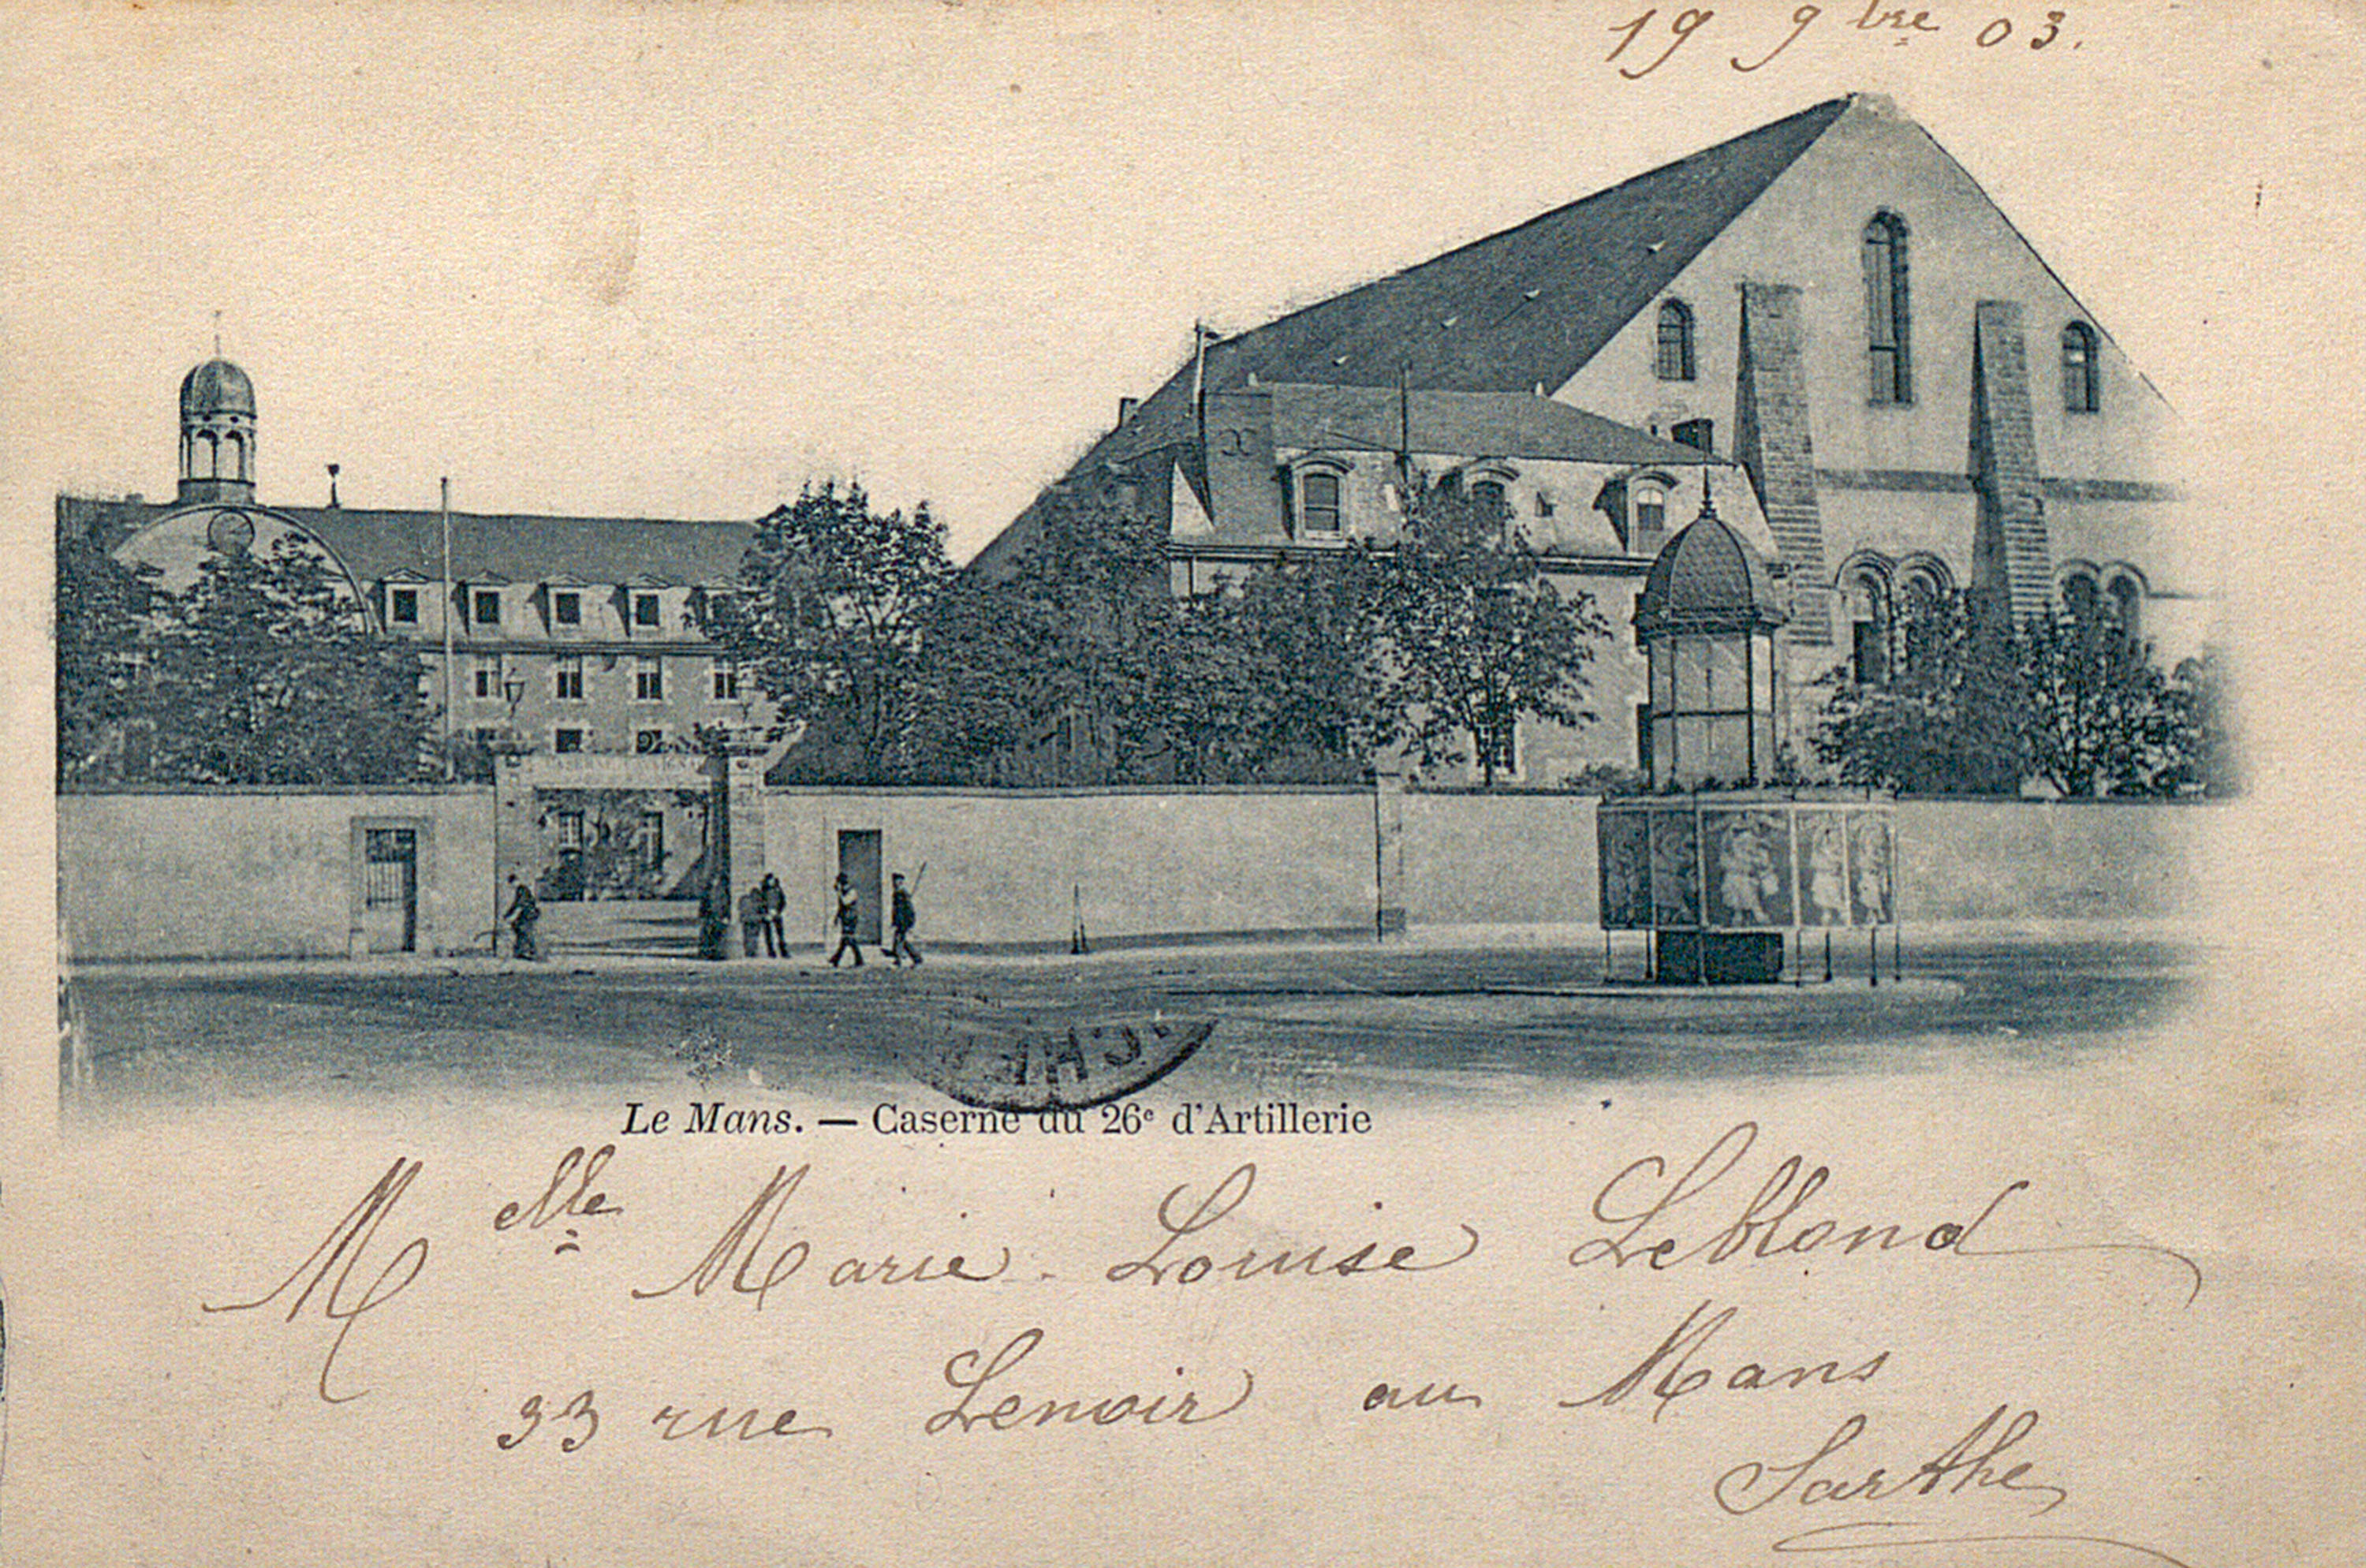 19 9bre 03.
Le Mans. — Caserne du 26e d'Artillerie
Melle Marie-Louise Leblond
33 rue Lenoir au Mans
Sarthe